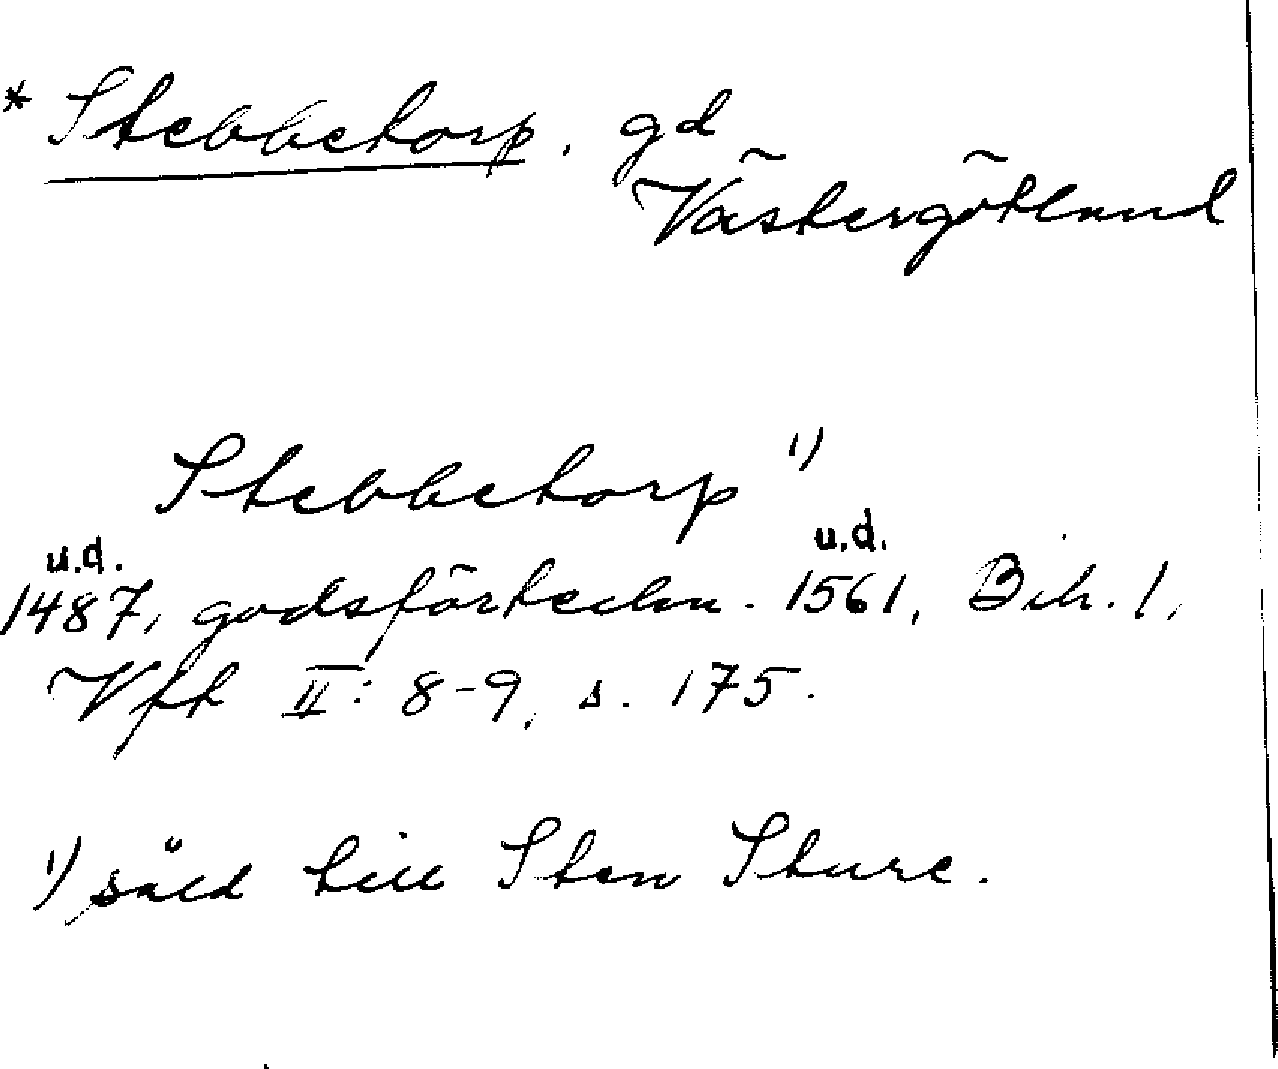 * Stebbetorp, gd
Västergötland
Stebbetorp ¹)
u.d. u.d.
1487, godsförteckn. 1561, Bih. 1,
Vft II: 8-9, s. 175.
¹) såld till Sten Sture.